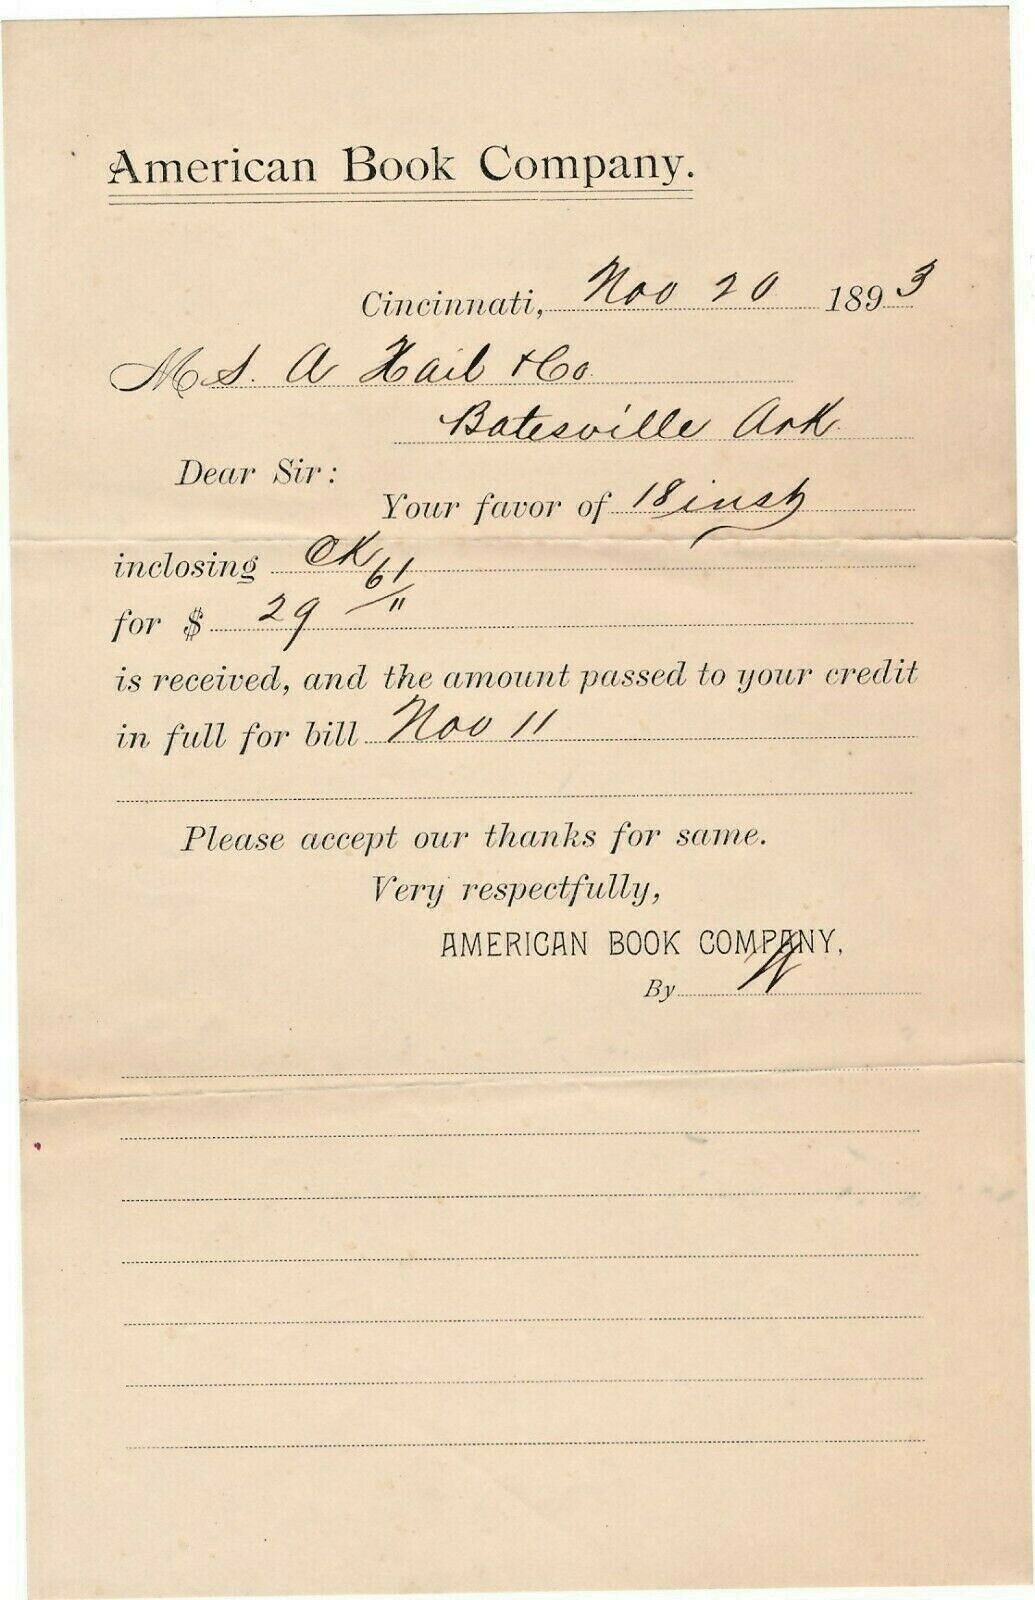 American Book Company.
Cincinnati, Nov 20 1893
M S. A Hail & Co.
Batesville Ark.
Dear Sir:
Your favor of 18 inst
inclosing CK
for $ 29 61/"
is received, and the amount passed to your credit
in full for bill Nov 11
Please accept our thanks for same.
Very respectfully,
AMERICAN BOOK COMPANY,
By W